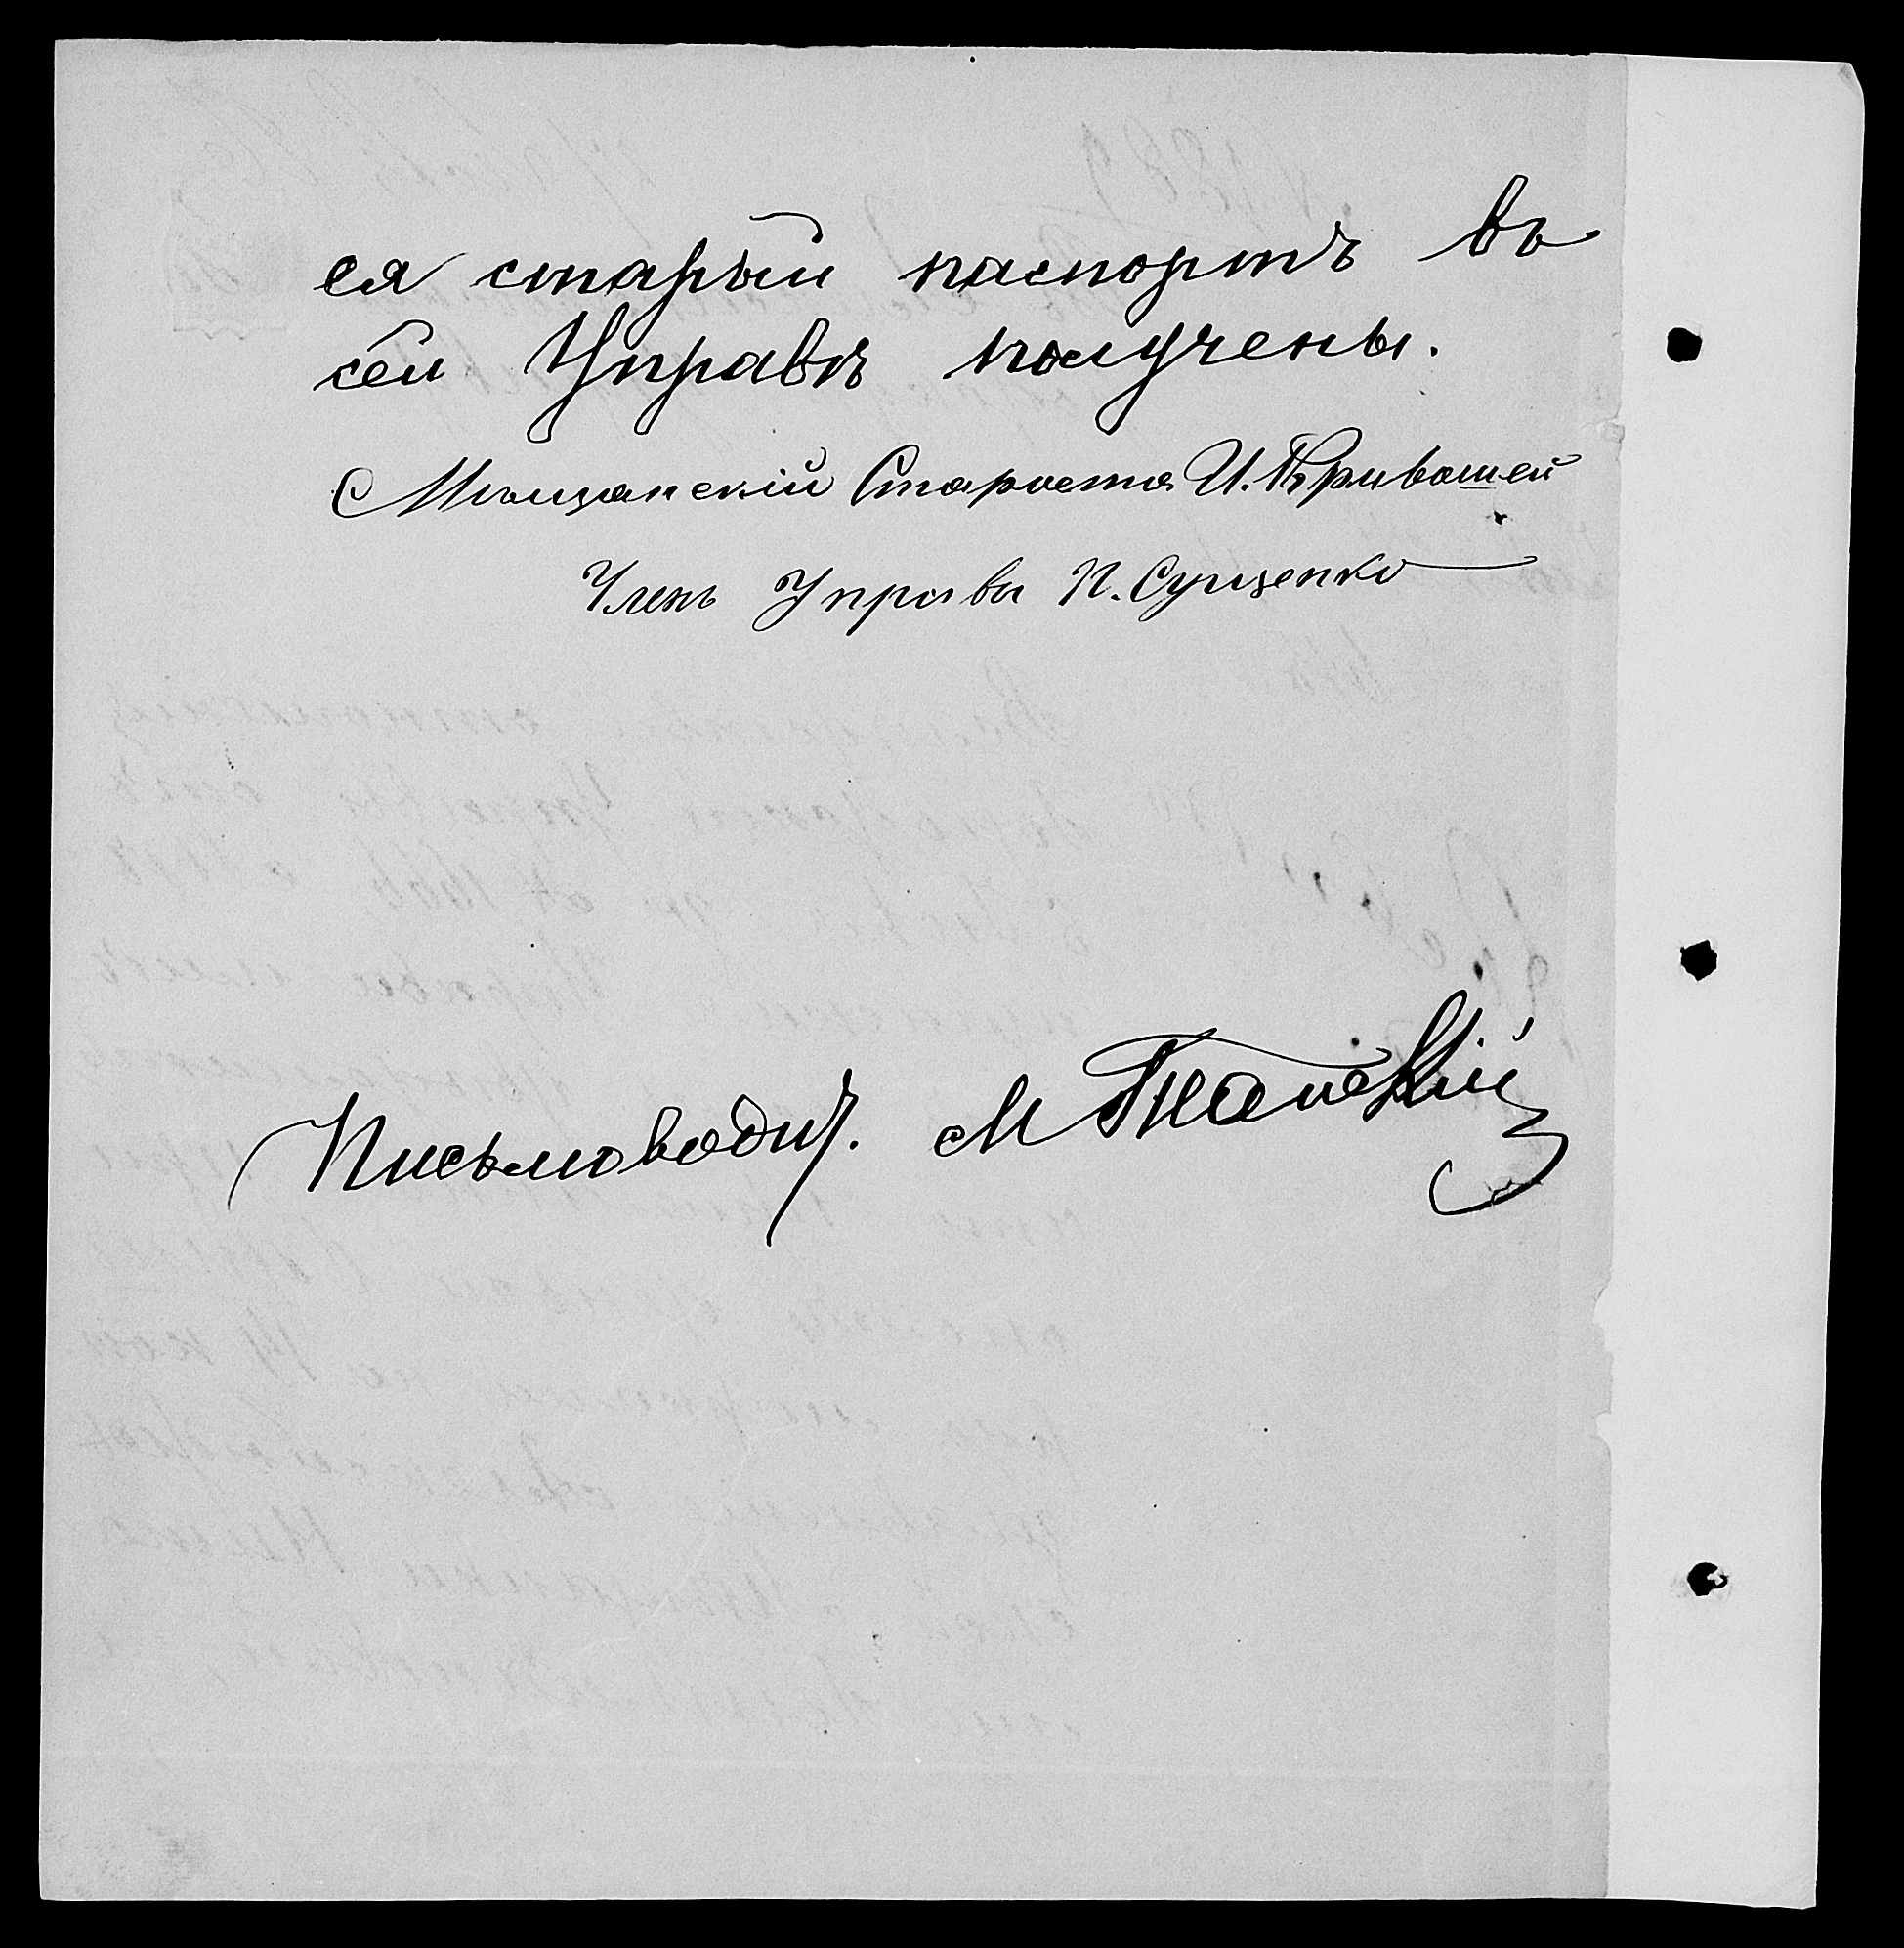 ея старый паспортъ въ
сей Управѣ получены.
Мѣщанскій Староста И. Кривошей
Членъ Управы П. Сущенко
Письмовод. М